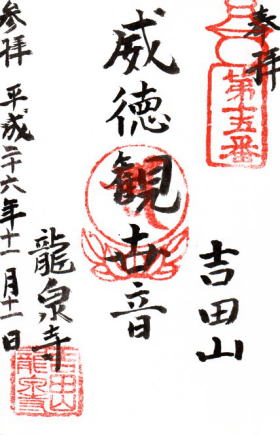 奉拝
第十五番
吉田山
威徳観世音
龍泉寺
吉田山
龍泉寺
参拝 平成二十六年十一月十一日